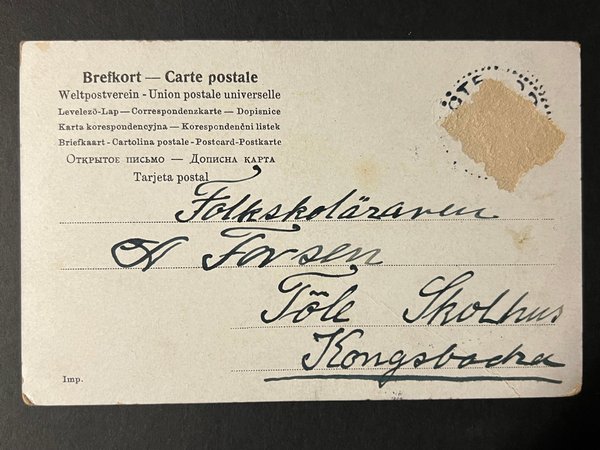 Brefkort — Carte postale
Weltpostverein - Union postale universelle
Levelező-Lap — Correspondenzkarte — Dopisnice
Karta korespondencyjna — Korespondenční listek
Briefkaart - Cartolina postale - Postcard-Postkarte
Открытое письмо — Дописна карта
Tarjeta postal
Folkskoläraren
A Forsen
Töle Skolhus
Kongsbacka
Imp.